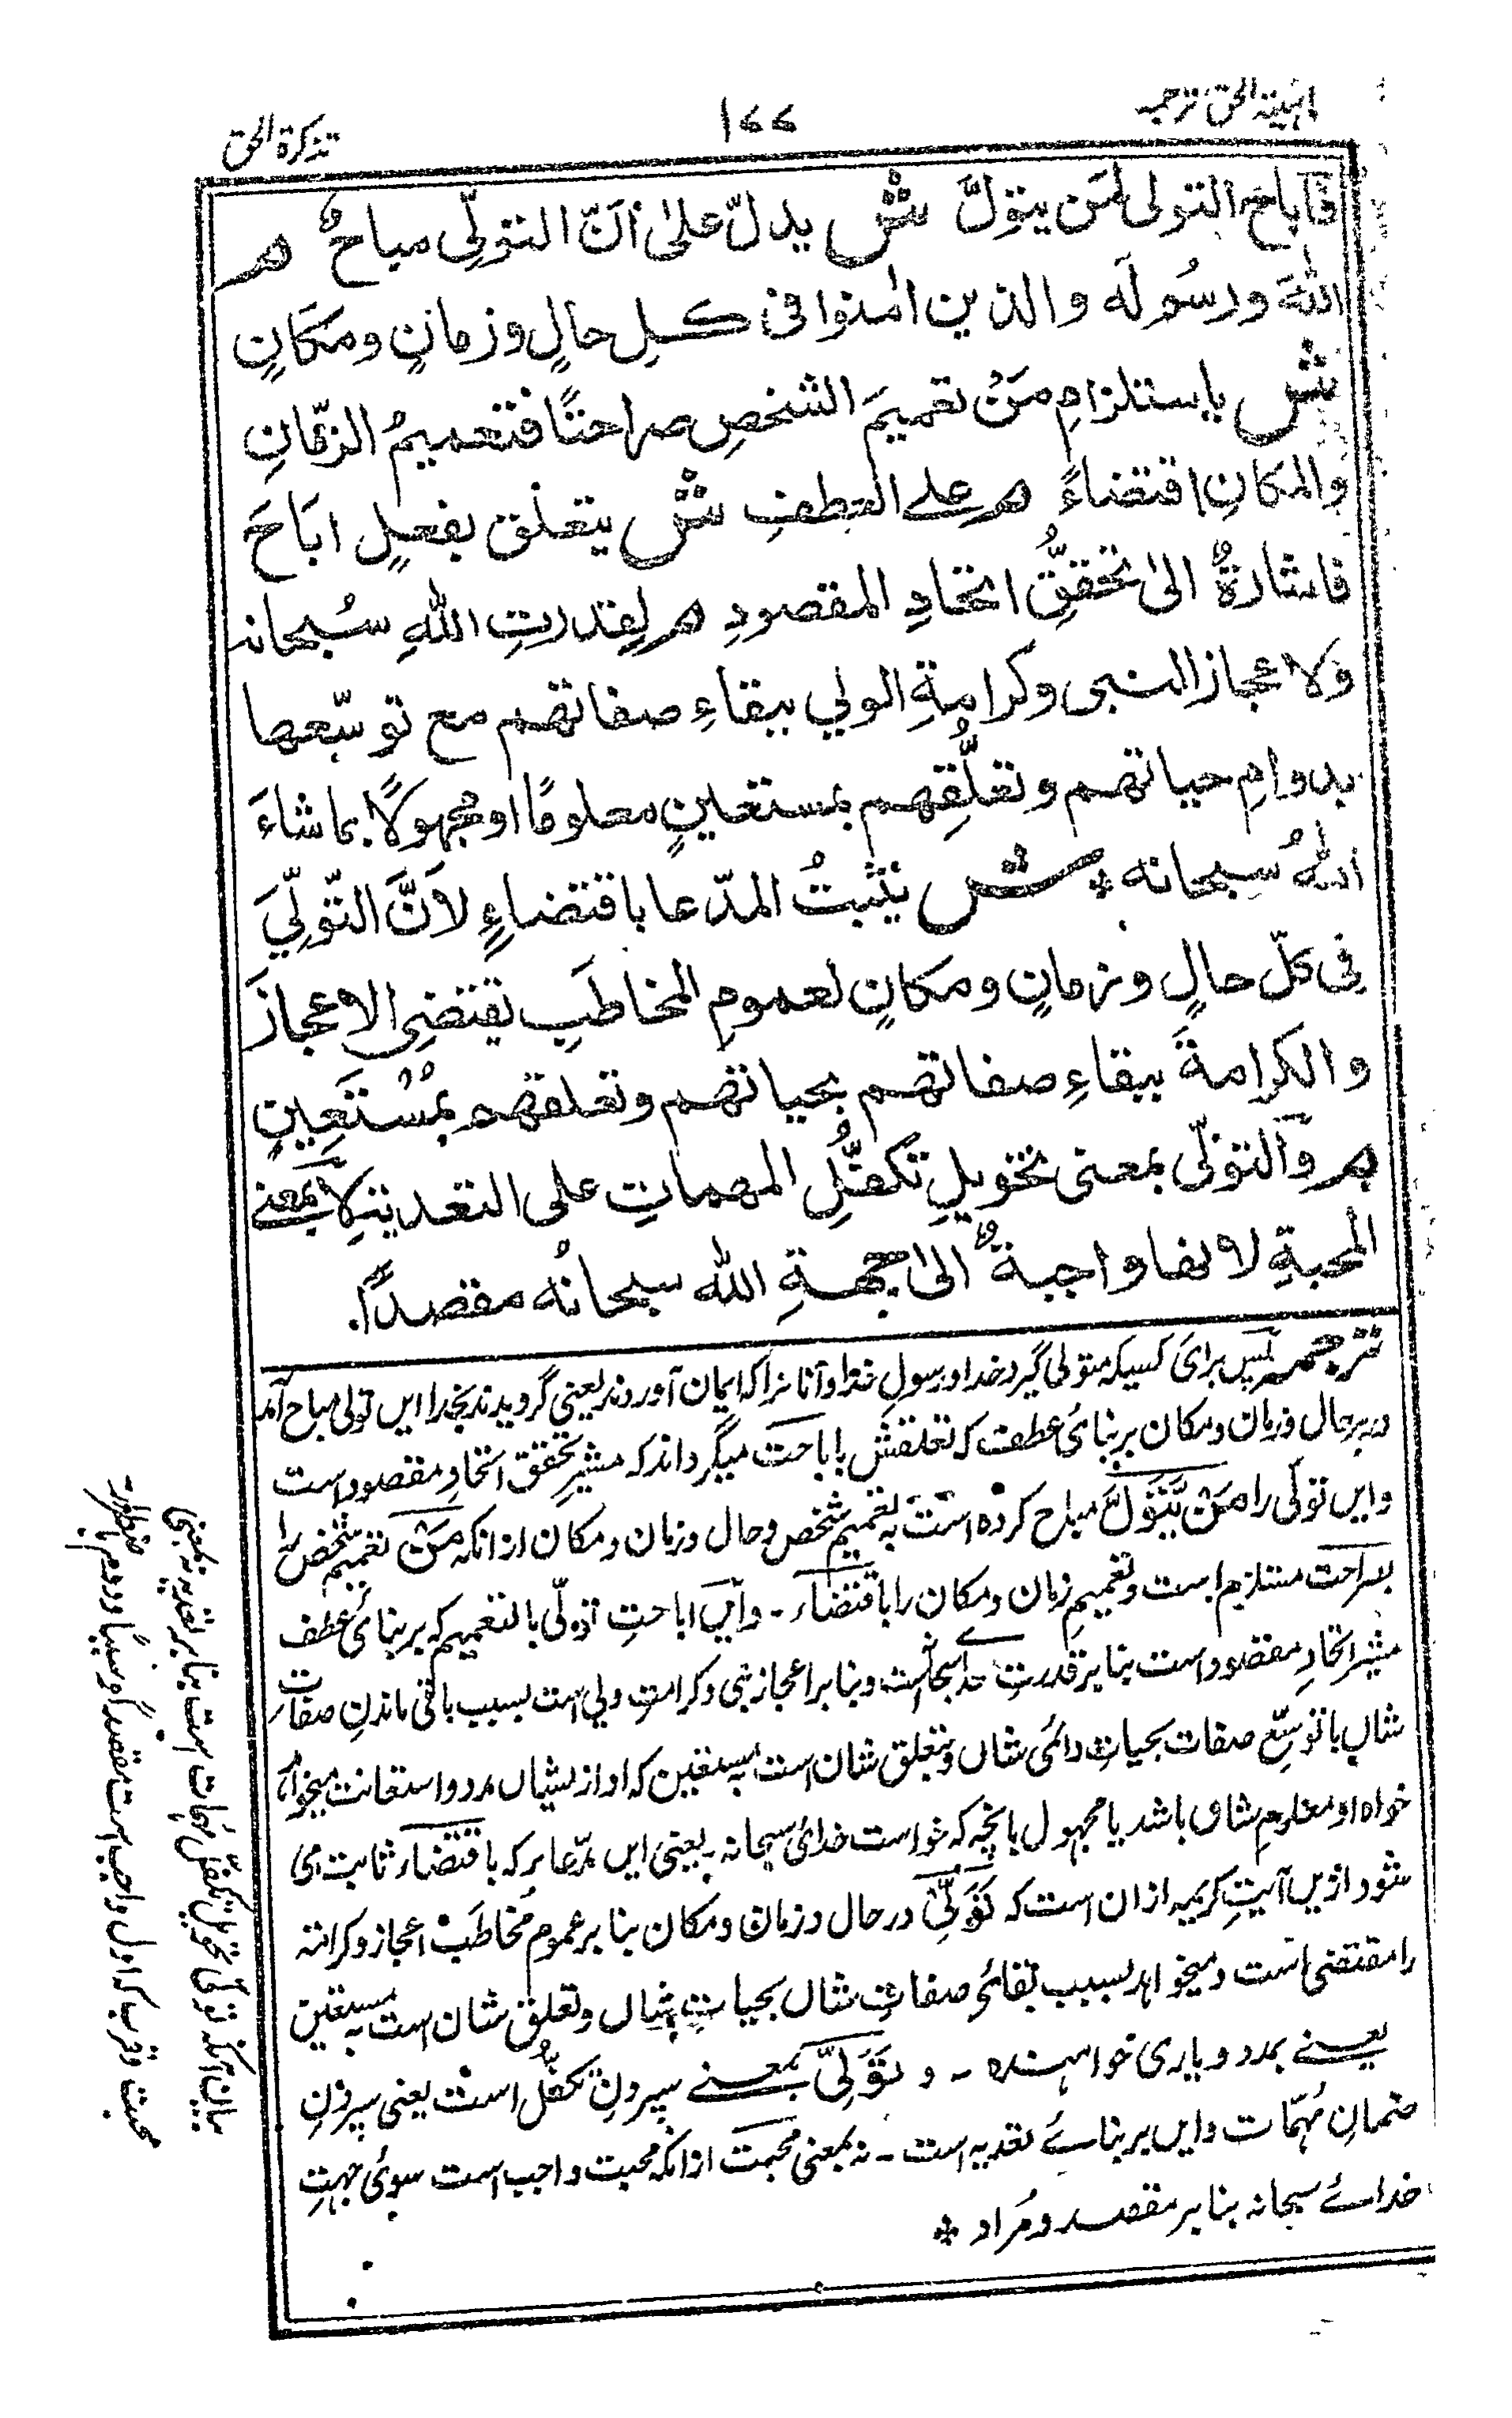 تذکرة الحق
۱۷۷
ماہیة الحق ترجمہ
فاباحَ التولی لمَن یتولَّ ش یدلّ علیٰ انّ التولّی مباحٌ ھ
اللہَ ورسُولَہ والذین اٰمنوا فی کلِ حالٍ وزمانٍ ومکانٍ
ش باستلزامِ مَنْ تعمیمَ الشخصِ صراحتًا فتعمیمُ الزمانِ
والمکانِ اقتضاءً ھ علے العطفِ ش یتعلق بفعلِ ابَاحَ
فاشارةٌ الیٰ تحققِ اتحادِ المقصودِ ھ لِقدرتِ اللہِ سُبحانہ
ولاعجاز النبی وکرامةِ الولی ببقاءِ صفاتھم مع توسّعھا
بدوامِ حیاتھم وتعلُّقِھم بمستعینٍ معلومًا او مجہولًا بما شاءَ
اللہُ سبحانہ * ش یثبتُ المدّعا باقتضاءٍ لاَنَّ التّولِّیَ
فی کلّ حالٍ وزمانٍ ومکانٍ لعمومِ المخاطَبِ یقتضِی الاعجازَ
والکرامةَ ببقاءِ صفاتھم بحیاتھم وتعلقھم بمُسْتَعِینٍ
ھ والتولّی بمعنی تخویلِ تکفُّلِ المھماتِ علی التعدیةِ لا بمعنے
المحبةِ لانھا واجبةٌ الیٰ جھةِ اللہ سبحانُہ مقصدًا.
ترجمہ پس برای کسیکہ متولی گیرد خدا و رسولِ خدا و آنانرا کہ ایمان آوردند یعنی گرویدند بخدا ایں تولی مباح آمد
در ہر حال و زمان و مکان بر بنائ عطف کہ تعلقش با باحت میگرداند کہ مشیرِ تحقق اتحادِ مقصود است
و ایں تولّی را مَنْ یَّتَوَلَّ مباح کردہ است بہ تعمیم شخص و حال و زمان و مکان از انکہ مَنْ تعمیم شخص را
بصراحت مستلزم است و تعمیمِ زمان و مکان را باقتضاء ۔ و ایں اباحتِ تولّی بالتعمیم کہ بر بنائ عطف
مشیرِ اتحادِ مقصود است بنا بر قدرتِ خدا سبحانہ است و بنا بر اعجاز نبی و کرامتِ ولی است بسبب باقی ماندنِ صفات
شاں با توسّعِ صفات بحیاتِ دائمی شاں و تعلق شان است بہ مستعین کہ او از یشاں مدد و استعانت میخواہد
خواہ او معلوم شاں باشد یا مجہول بانچہ کہ خواست خدائ سبحانہ یعنی ایں مدّعا ہر کہ باقتضاء ثابت می
شود ازیں آیتِ کریمہ ازان است کہ تَوَلِّی در حال و زمان و مکان بنا بر عموم مُخاطَب اعجاز و کرامتہ
را مقتضی است و میخواہد بسبب بقائ صفاتِ شاں بحیاتِ شاں و تعلق شان است بہ مستعین
یعنے بمدد و یاری خواہندہ ۔ و تَوَلِّی بمعنے سپردنِ تکفُّل است یعنی سپردنِ
ضمانِ مُہمّات و ایں بر بنائے تعدیہ است ۔ نہ بمعنی محبت از انکہ محبت واجب است سوئ جہتِ
خدائے سبحانہ بنا بر مقصد و مُراد *
بیان آنکہ تولّی تخویل تکفّل مہمات است بنا بر تعدیہ نہ بمعنی
محبت